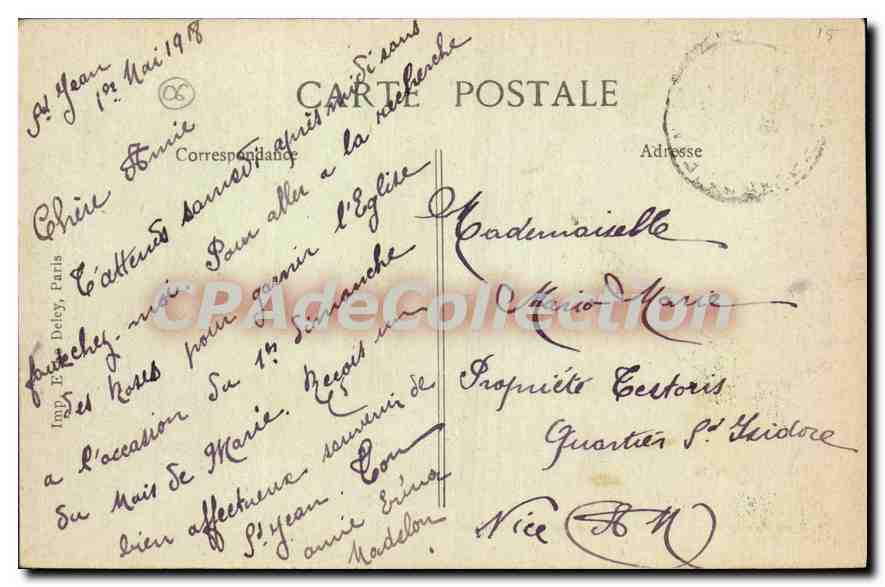 CARTE POSTALE
Correspondance
Adresse
15
06
St Jean
1er Mai 1918
Chère Amie
T'attends samedi après midi sans
faute chez-moi Pour aller a la recherche
des Roses pour garnir l'Eglise
a l'occasion du 1er dimanche
du Mois de Marie. Reçois un
bien affectueux souvenir de
St Jean. Ton
amie
Madelon
Mademoiselle
Mario Marie
Propriété Testoris
Quartier St Isidore
Nice (A M)
Imp. E. Deley, Paris
CPAdeCollection